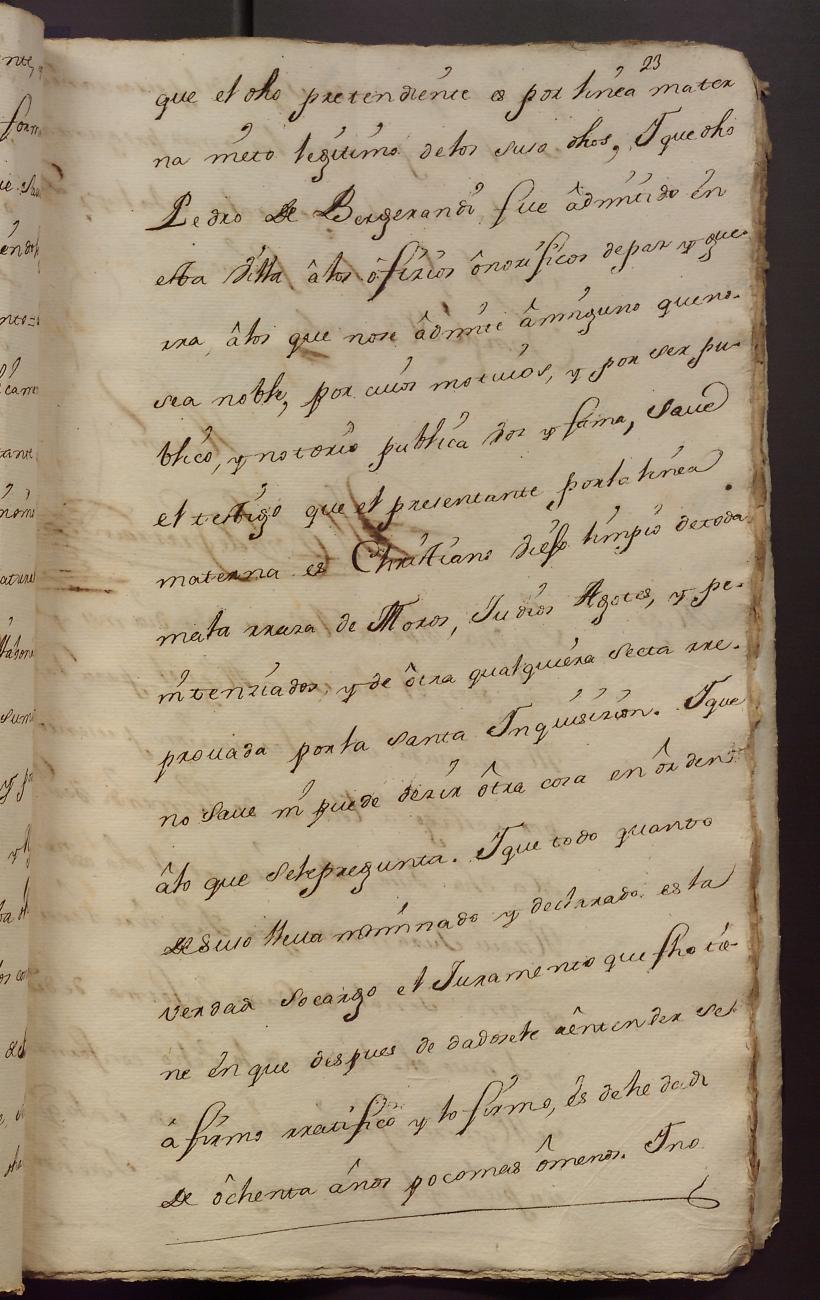 23
que el dho pretendiente es por linea mater
na nieto legitimo delos suso dhos, Y que dho
Pedro de Bergerandi, fue âdmitido en
esta Villa âlos ôficios ônorificos de paz y gue
rra, âlos que nose âdmite âninguno queno
sea noble, por cuios motiuos, y por ser pu
blico, y notorio publica voz y fama, saue
el testigo que el presentante porla linea
materna es Christiano viejo limpio detoda
mala rraza de Moros, Judios Agotes, y pe
nitenziados, y de ôtra qualquiera secta rre
prouada porla santa Inquisizion. Y que
no saue ni puede dezir ôtra cosa en ôrden
âlo que sele pregunta. Y que todo quanto
de suso lleua nominado y declarado es la
verdad socargo el Juramento que fho tie
ne en que despues de dadosele aêntender se
afirmo rratifico y lo firmo, ês de hedad
de ôchenta años poco mas ômenos. Y no